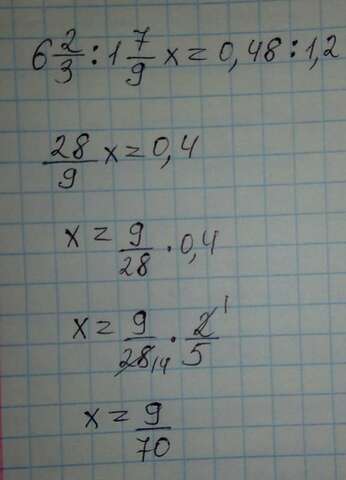 6 2/3 : 1 7/9 x = 0,48 : 1,2
28/9 x = 0,4
x = 9/28 · 0,4
x = 9/28 14 · 2/5 1
x = 9/70